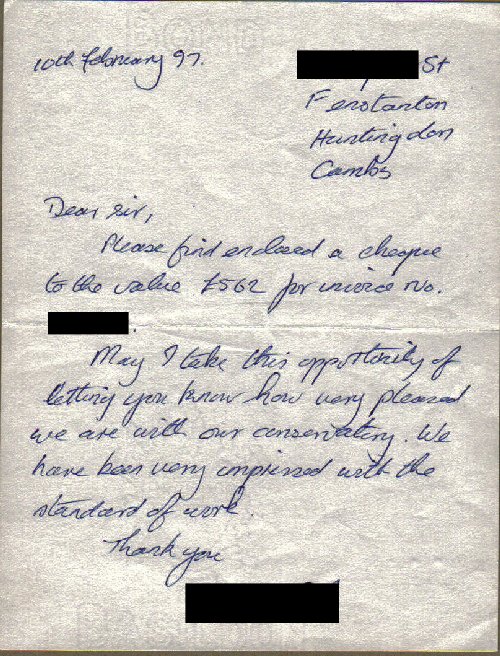 10th February 97.
St
Fenstanton
Huntingdon
Cambs
Dear Sir,
Please find enclosed a cheque
to the value £562 for invoice no.
.
May I take this opportunity of
letting you know how very pleased
we are with our conservatory. We
have been very impressed with the
standard of work.
Thank you